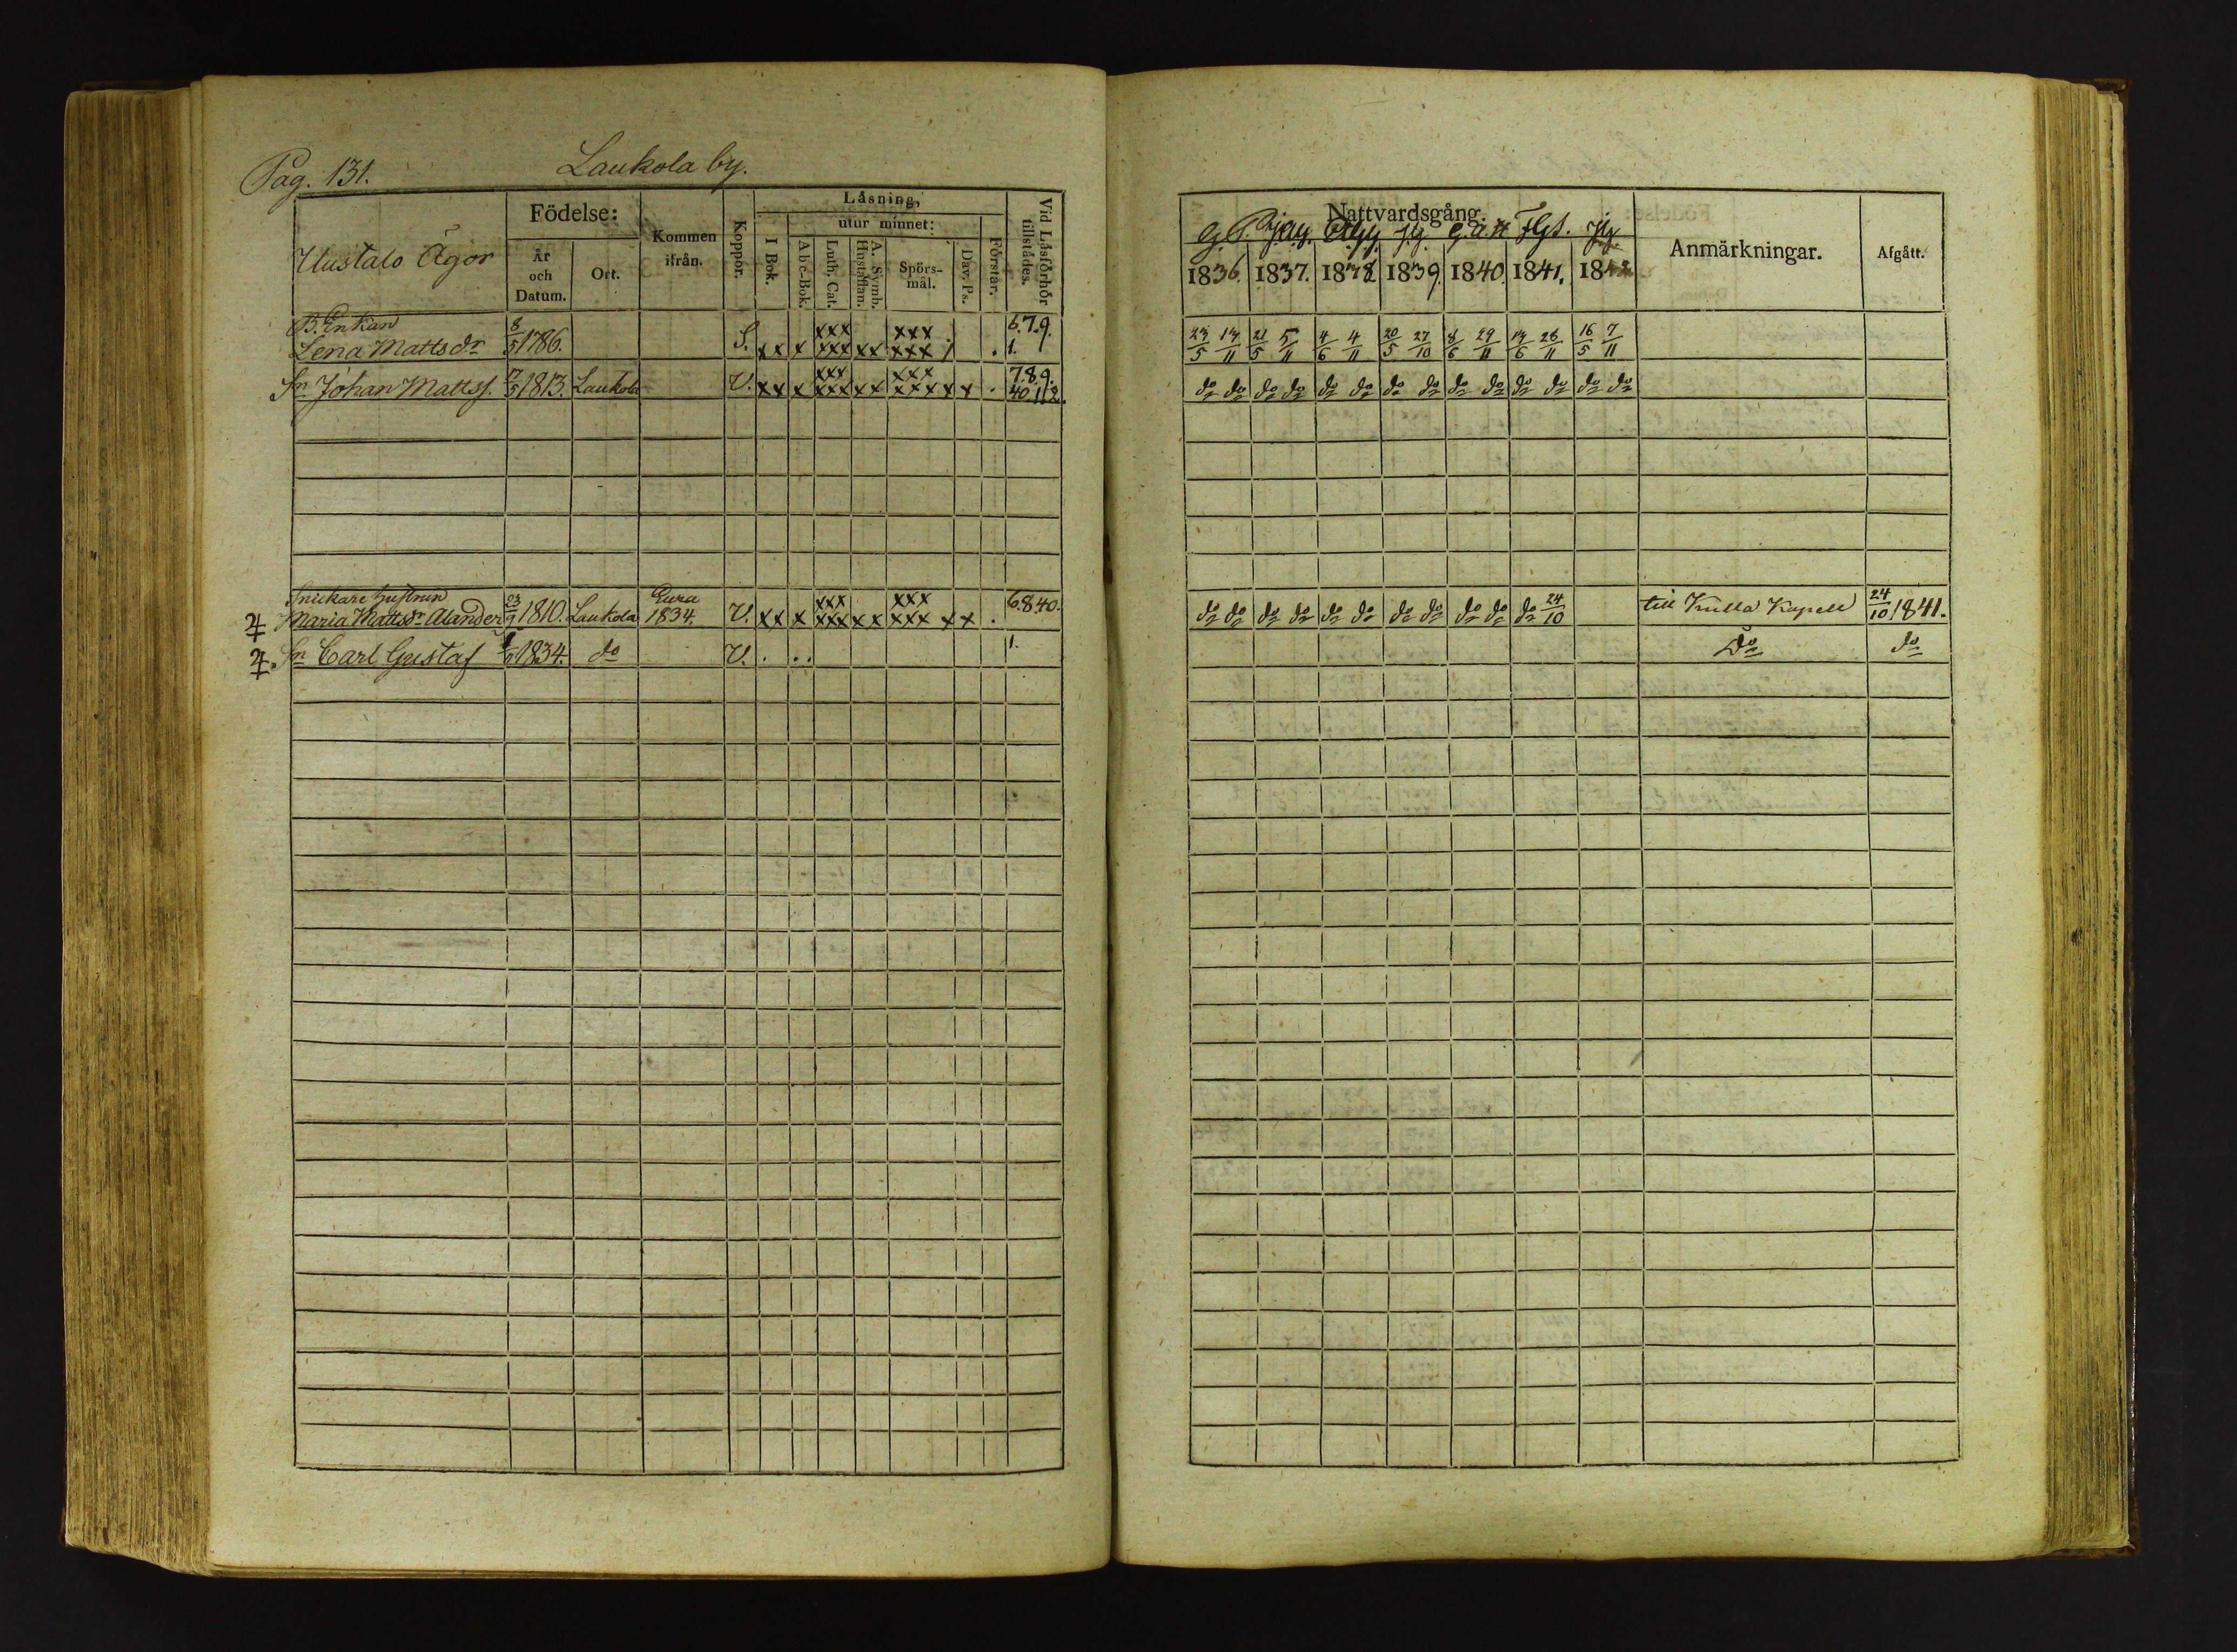 Pag. 131. Laukola by.
Uustalo Ägor
Födelse:
År och Datum.
Ort.
Kommen ifrån.
Koppor.
Läsning,
I Bok.
utur minnet:
A b c-Bok.
Luth. Cat.
A. Symb. Hustaflan.
Spörs-mål.
Dav. Ps.
Förstår.
Vid Läsförhör tillstädes.
Nattvardsgång.
1836. 1837. 1838 1839. 1840. 1841. 1842
Anmärkningar.
Afgått.
B. Enkan xxx xxx 6.7.9.
Lena Mattsdr 8/5 1786. S. xx x xxx xx xxx / . 1. 23/5 13/11 21/5 5/11 4/6 4/11 20/5 27/10 8/6 29/11 13/6 28/11 16/5 7/11
xxx xxx 7.8.9.
Sn Johan Mattss. 17/5 1813. Laukola V. xx x xxx xx xxx xx . 40.1.2. do do do do do do do do do do do do do do
Snickare Hustrun Eura xxx xxx 6.8.40.
Maria Mattsdr Alander 23/9 1810. Laukola 1834. V. xx x xxx xx xxx xx . do do do do do do do do do do do 24/10 till Kiulla Kapell 24/10 1841.
Sn Carl Gustaf 1834. do V. . . . 1. Do do